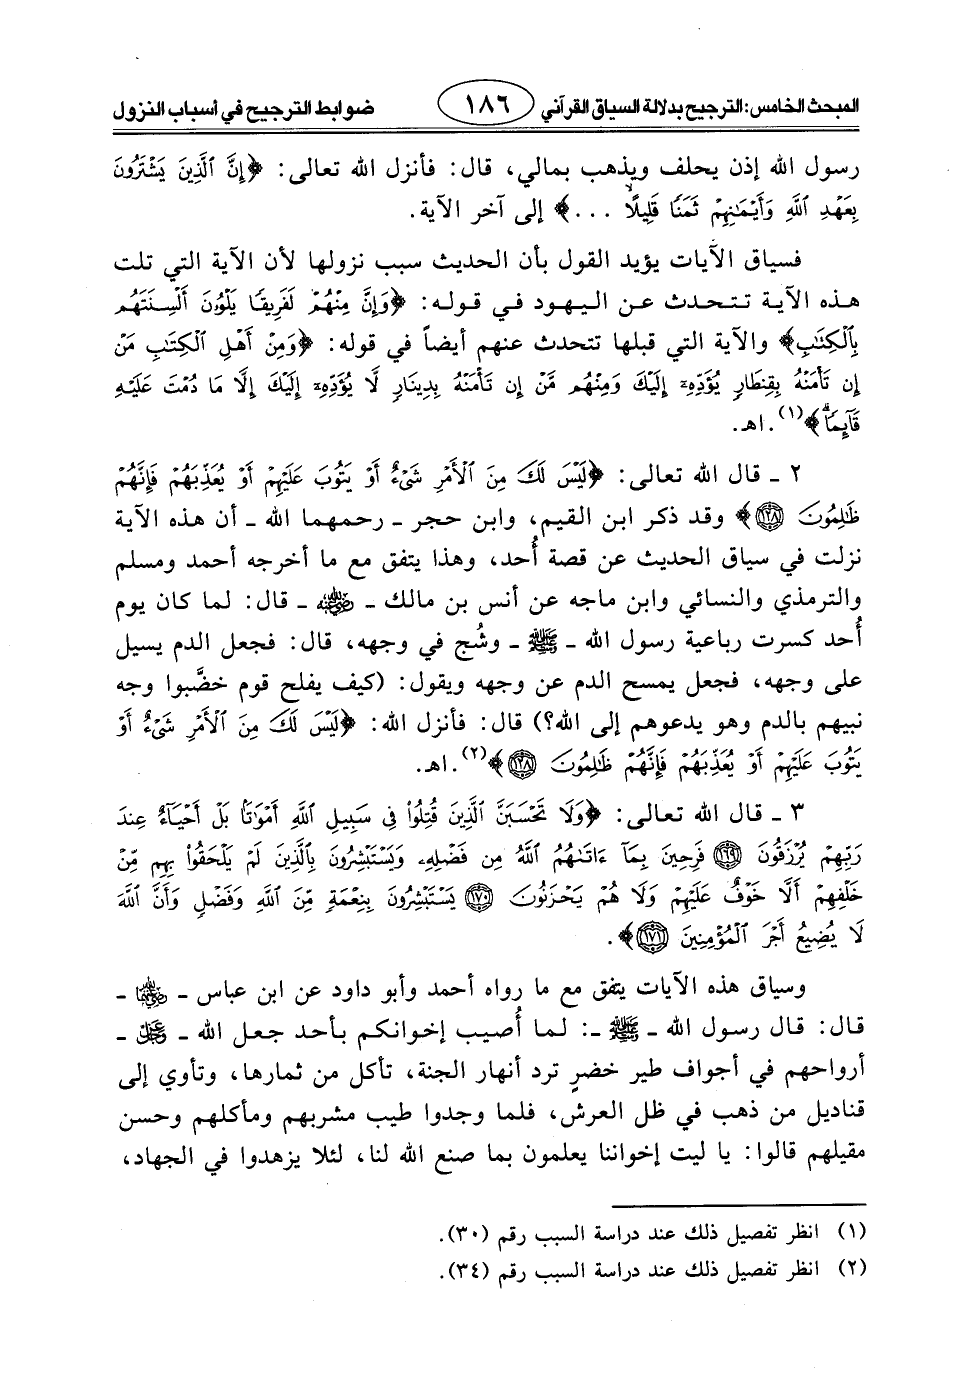 المبحث الخامس: الترجيح بدلالة السياق القرآني ١٨٦ ضوابط الترجيح في أسباب النزول
رسول الله إذن يحلف ويذهب بمالي، قال: فأنزل الله تعالى: ﴿إِنَّ ٱلَّذِينَ يَشْتَرُونَ
بِعَهْدِ ٱللَّهِ وَأَيْمَٰنِهِمْ ثَمَنًا قَلِيلًا ...﴾ إلى آخر الآية.
فسياق الآيات يؤيد القول بأن الحديث سبب نزولها لأن الآية التي تلت
هذه الآية تتحدث عن اليهود في قوله: ﴿وَإِنَّ مِنْهُمْ لَفَرِيقًا يَلْوُۥنَ أَلْسِنَتَهُم
بِٱلْكِتَٰبِ﴾ والآية التي قبلها تتحدث عنهم أيضاً في قوله: ﴿وَمِنْ أَهْلِ ٱلْكِتَٰبِ مَنْ
إِن تَأْمَنْهُ بِقِنطَارٍ يُؤَدِّهِۦٓ إِلَيْكَ وَمِنْهُم مَّنْ إِن تَأْمَنْهُ بِدِينَارٍ لَّا يُؤَدِّهِۦٓ إِلَيْكَ إِلَّا مَا دُمْتَ عَلَيْهِ
قَآئِمًا﴾(١). اهـ.
٢ ـ قال الله تعالى: ﴿لَيْسَ لَكَ مِنَ ٱلْأَمْرِ شَىْءٌ أَوْ يَتُوبَ عَلَيْهِمْ أَوْ يُعَذِّبَهُمْ فَإِنَّهُمْ
ظَٰلِمُونَ ١٢٨﴾ وقد ذكر ابن القيم، وابن حجر ـ رحمهما الله ـ أن هذه الآية
نزلت في سياق الحديث عن قصة أُحد، وهذا يتفق مع ما أخرجه أحمد ومسلم
والترمذي والنسائي وابن ماجه عن أنس بن مالك ـ رضي الله عنه ـ قال: لما كان يوم
أُحد كسرت رباعية رسول الله ـ ﷺ ـ وشُج في وجهه، قال: فجعل الدم يسيل
على وجهه، فجعل يمسح الدم عن وجهه ويقول: (كيف يفلح قوم خضَّبوا وجه
نبيهم بالدم وهو يدعوهم إلى الله؟) قال: فأنزل الله: ﴿لَيْسَ لَكَ مِنَ ٱلْأَمْرِ شَىْءٌ أَوْ
يَتُوبَ عَلَيْهِمْ أَوْ يُعَذِّبَهُمْ فَإِنَّهُمْ ظَٰلِمُونَ ١٢٨﴾(٢). اهـ.
٣ ـ قال الله تعالى: ﴿وَلَا تَحْسَبَنَّ ٱلَّذِينَ قُتِلُوا۟ فِى سَبِيلِ ٱللَّهِ أَمْوَٰتًۢا بَلْ أَحْيَآءٌ عِندَ
رَبِّهِمْ يُرْزَقُونَ ١٦٩ فَرِحِينَ بِمَآ ءَاتَىٰهُمُ ٱللَّهُ مِن فَضْلِهِۦ وَيَسْتَبْشِرُونَ بِٱلَّذِينَ لَمْ يَلْحَقُوا۟ بِهِم مِّنْ
خَلْفِهِمْ أَلَّا خَوْفٌ عَلَيْهِمْ وَلَا هُمْ يَحْزَنُونَ ١٧٠ يَسْتَبْشِرُونَ بِنِعْمَةٍ مِّنَ ٱللَّهِ وَفَضْلٍ وَأَنَّ ٱللَّهَ
لَا يُضِيعُ أَجْرَ ٱلْمُؤْمِنِينَ ١٧١﴾.
وسياق هذه الآيات يتفق مع ما رواه أحمد وأبو داود عن ابن عباس ـ رضي الله عنهما ـ
قال: قال رسول الله ـ ﷺ ـ: لما أُصيب إخوانكم بأحد جعل الله ـ عز وجل ـ
أرواحهم في أجواف طير خضرٍ ترد أنهار الجنة، تأكل من ثمارها، وتأوي إلى
قناديل من ذهب في ظل العرش، فلما وجدوا طيب مشربهم ومأكلهم وحسن
مقيلهم قالوا: يا ليت إخواننا يعلمون بما صنع الله لنا، لئلا يزهدوا في الجهاد،
(١) انظر تفصيل ذلك عند دراسة السبب رقم (٣٠).
(٢) انظر تفصيل ذلك عند دراسة السبب رقم (٣٤).